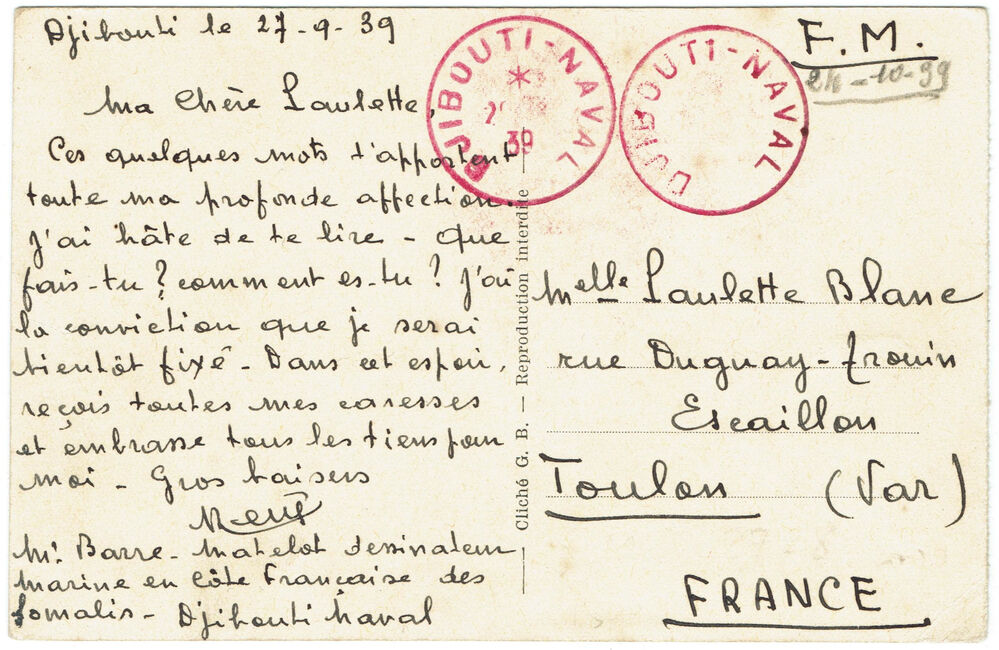 Djibouti le 27-9-39
Ma Chère Paulette,
Ces quelques mots t'apportent
toute ma profonde affection.
J'ai hâte de te lire - Que
fais-tu? comment es-tu? J'ai
la conviction que je serai
bientôt fixé - Dans cet espoir,
reçois toutes mes caresses
et embrasse tous les tiens pour
moi - Gros baisers
Mr Barre - Matelot dessinateur
Marine en Côte Française des
Somalis - Djibouti Naval
DJIBOUTI-NAVAL
*
39
DJIBOUTI-NAVAL
F.M.
24-10-39
Cliché G. B. — Reproduction interdite
Melle Paulette Blanc
rue Duguay-Trouin
Escaillon
Toulon (Var)
FRANCE